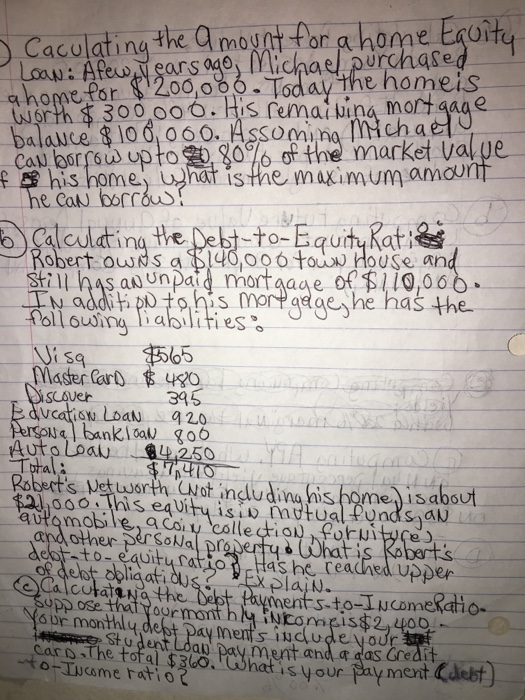 Caculating the Amount for a home Equity
Loan: A few years ago, Michael purchased
a home for $200,000. Today the home is
worth $300,000. His remaining mortgage
balance $100,000. Assuming Michael
can borrow up to 80% of the market value
f his home, what is the maximum amount
he can borrow?
b) Calculating the Debt-to-Equity Ratio
Robert owns a $140,000 town House and
still has an unpaid mortgage of $110,000.
IN addition to his mortgage, he has the
following liabilities:
Visa $565
MasterCard $ 480
Discover 395
Education Loan 920
Personal bank loan 800
Auto Loan 4,250
Total: $7,410
Robert's Net worth (Not including his home) is about
$21,000. This equity is in mutual funds, an
automobile, a coin collection, furniture,
and other personal property. What is Robert's
debt-to-equity ratio? Has he reached upper
of debt obligations? Explain.
c) Calculating the Debt Payments-to-Income Ratio.
Suppose that your monthly income is $2,400.
Your monthly debt payments include your
student Loan payment and a gas credit
card. The total $360. What is your payment (debt)
to-Income ratio?